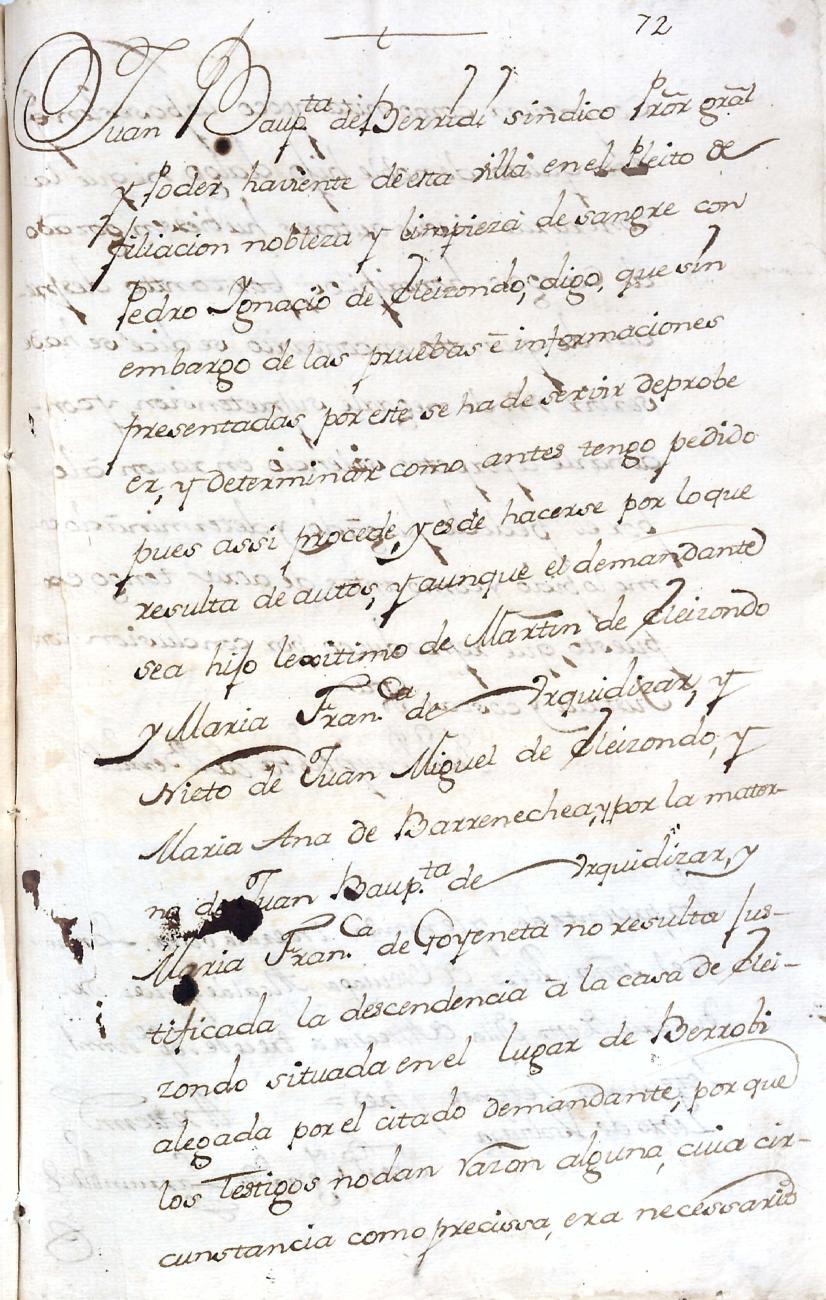 72
Juan Baup.ta de Berridi sindico Pror gral
y Poder haviente de esta villa en el Pleito de
filiacion nobleza y limpieza de sangre con
Pedro Ygnacio de Eleizondo, digo, que sin
embargo de las pruebas e informaciones
presentadas por este se ha de servir de probe
er, y determinar como antes tengo pedido
pues assi procede, y es de hacerse por lo que
resulta de autos, y aunque el demandante
sea hijo lexitimo de Martin de Eleizondo
y Maria Fran.ca de Urquidizar, y
Nieto de Juan Miguel de Eleizondo, y
Maria Ana de Barrenechea, y por la mater-
na de Juan Baup.ta de Urquidizar, y
Maria Fran.ca de Goyeneta no resulta jus-
tificada la descendencia à la casa de Elei-
zondo situada en el lugar de Berrobi
alegada por el citado demandante, por que
los Testigos no dan razon alguna, cuia cir-
cunstancia como precissa, era necessario